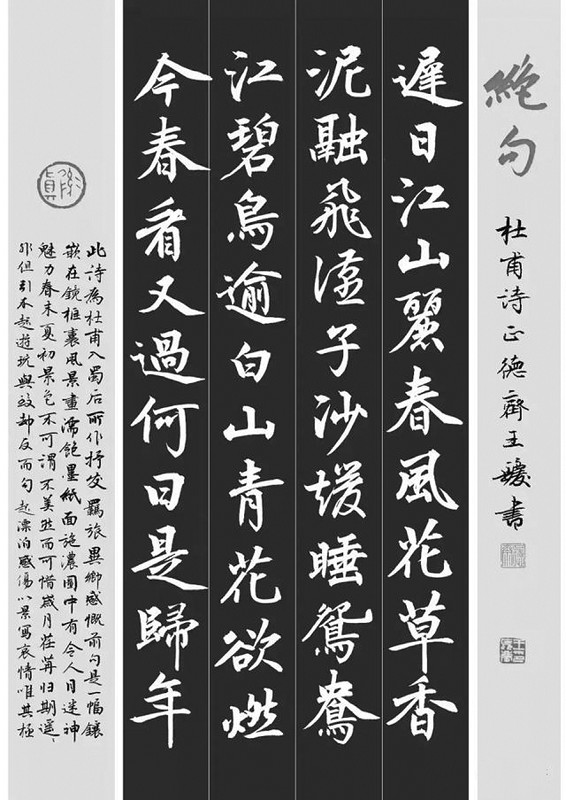 絶句
杜甫詩正德齊王書
遲日江山麗春風花草香
泥融飛燕子沙暖睡鴛鴦
江碧鳥逾白山青花欲燃
今春看又過何日是歸年
此詩為杜甫入蜀后所作抒發羈旅異鄉感慨前句是一幅鑲
嵌在鏡框裏風景畫濡飽墨紙面施濃圖中有令人目迷神
魅力春末夏初景色不可謂不美然而可惜歲月荏苒归期遥、
非但引不起遊玩興致却反而勾起漂泊感傷以景寫哀情唯其極